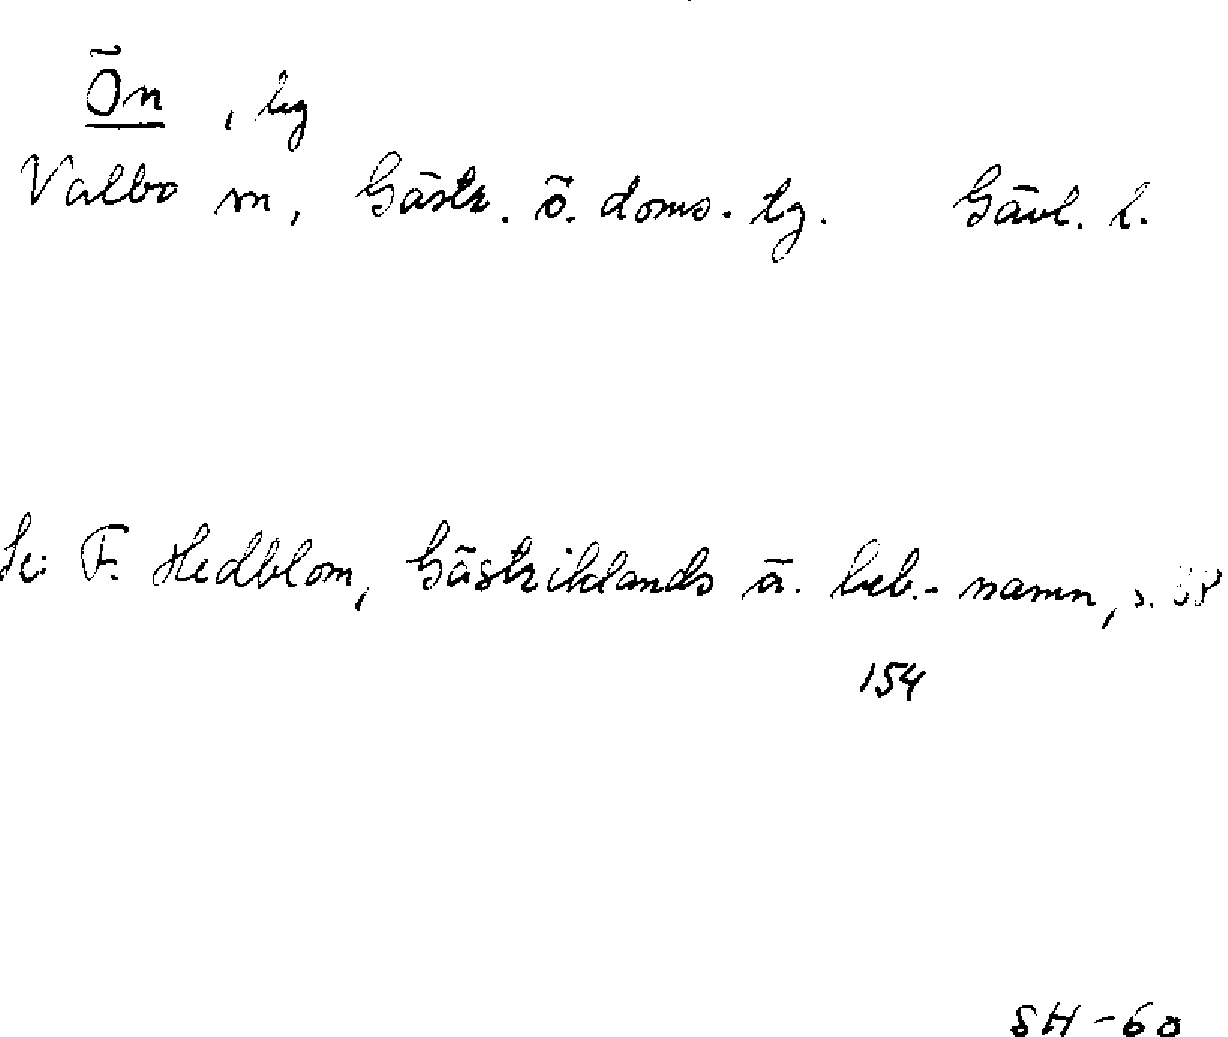 Ön, by
Valbo sn, Gästr. ö. doms. tg. Gävl. l.
Se: F. Hedblom, Gästriklands ä. beb.-namn, s.
154
SH-60